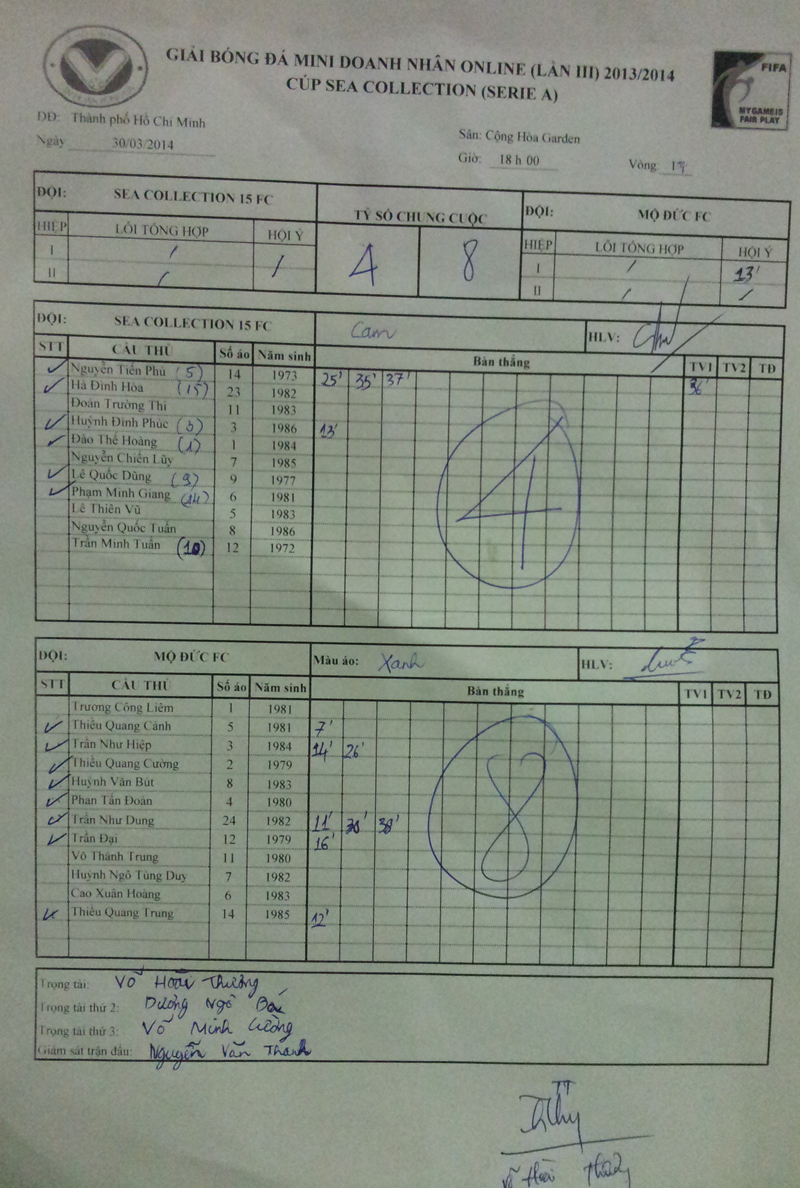 GIẢI BÓNG ĐÁ MINI DOANH NHÂN ONLINE (LẦN III) 2013/2014
CÚP SEA COLLECTION (SERIE A)
FIFA
MY GAME IS
FAIR PLAY
DĐ: Thành phố Hồ Chí Minh
Sân: Cộng Hòa Garden
Ngày 30/03/2014
Giờ: 18 h 00
Vòng: 17
ĐỘI: SEA COLLECTION 15 FC
TỶ SỐ CHUNG CUỘC
ĐỘI: MỘ ĐỨC FC
HIỆP LỖI TỔNG HỢP HỘI Ý
4 8
HIỆP LỖI TỔNG HỢP HỘI Ý
I / / I / 13'
II / II / /
ĐỘI: SEA COLLECTION 15 FC Cam HLV:
STT CẦU THỦ Số áo Năm sinh Bàn thắng TV1 TV2 TĐ
✓ Nguyễn Tiến Phú (5) 14 1973 25' 35' 37'
✓ Hà Đình Hòa (15) 23 1982 36'
Đoàn Trường Thi 11 1983
✓ Huỳnh Đình Phúc (3) 3 1986 13'
✓ Đào Thế Hoàng (1) 1 1984
Nguyễn Chiến Lũy 7 1985
✓ Lê Quốc Dũng (9) 9 1977
✓ Phạm Minh Giang (14) 6 1981
Lê Thiên Vũ 5 1983
Nguyễn Quốc Tuấn 8 1986
Trần Minh Tuấn (10) 12 1972
4
ĐỘI: MỘ ĐỨC FC Màu áo: Xanh HLV:
STT CẦU THỦ Số áo Năm sinh Bàn thắng TV1 TV2 TĐ
Trương Công Liêm 1 1981
✓ Thiều Quang Cảnh 5 1981 7'
✓ Trần Như Hiệp 3 1984 14' 26'
✓ Thiều Quang Cường 2 1979
✓ Huỳnh Văn Bút 8 1983
✓ Phan Tấn Đoàn 4 1980
✓ Trần Như Dung 24 1982 11' 38'
✓ Trần Đại 12 1979 16'
Võ Thành Trung 11 1980
Huỳnh Ngô Tùng Duy 7 1982
Cao Xuân Hoàng 6 1983
Thiều Quang Trung 14 1985 12'
8
Trọng tài: Võ Hoài Thương
Trọng tài thứ 2: Dương Ngô
Trọng tài thứ 3: Võ Minh Cường
Giám sát trận đấu: Nguyễn Văn Thành
TT
Võ Hoài